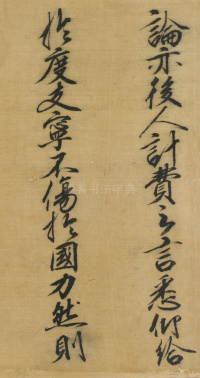 論亦後人計費之言悉仰給
於度支寧不傷於國力然則